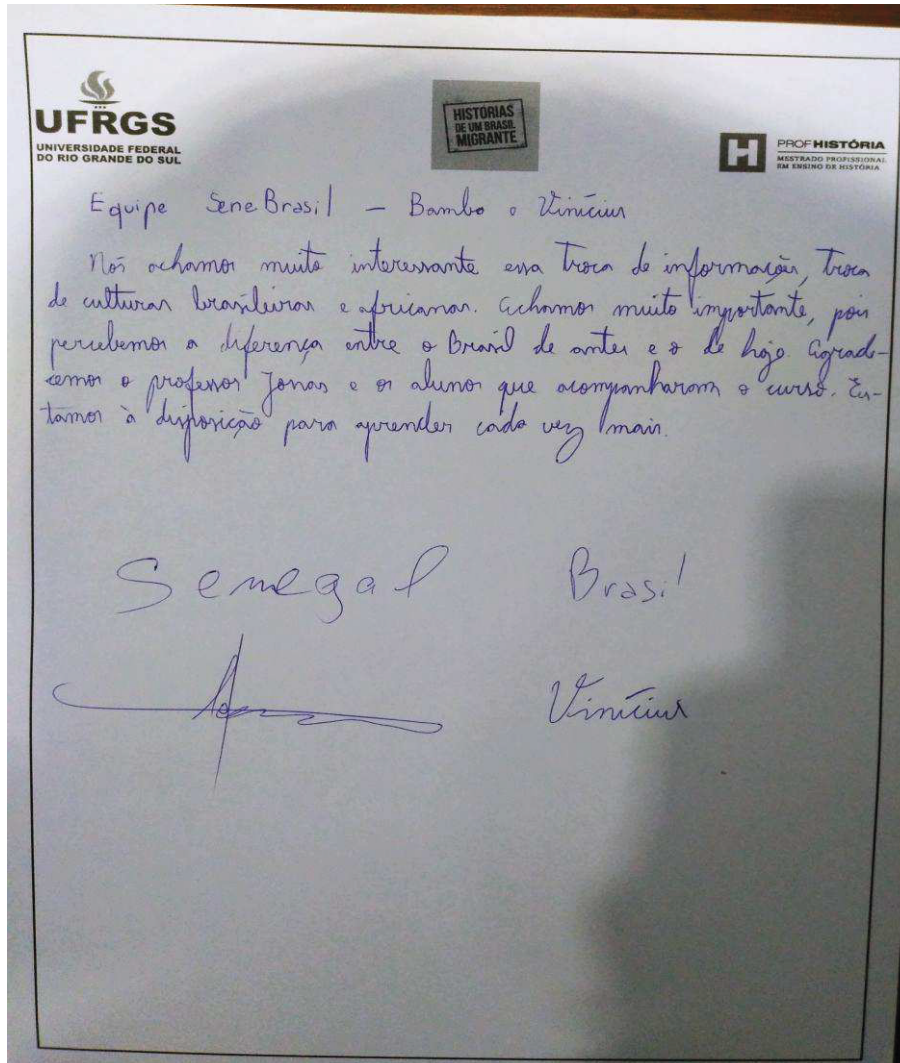 UFRGS
UNIVERSIDADE FEDERAL
DO RIO GRANDE DO SUL
HISTÓRIAS
DE UM BRASIL
MIGRANTE
H
PROFHISTÓRIA
MESTRADO PROFISSIONAL
EM ENSINO DE HISTÓRIA
Equipe SeneBrasil – Bambo e Vinícius
Nós achamos muito interessante essa troca de informações, troca
de culturas brasileiras e africanas. Achamos muito importante, pois
percebemos a diferença entre o Brasil de antes e o de hoje. Agrade-
cemos o professor Jonas e os alunos que acompanharam o curso. Es-
tamos à disposição para aprender cada vez mais.
Senegal Brasil
Vinícius